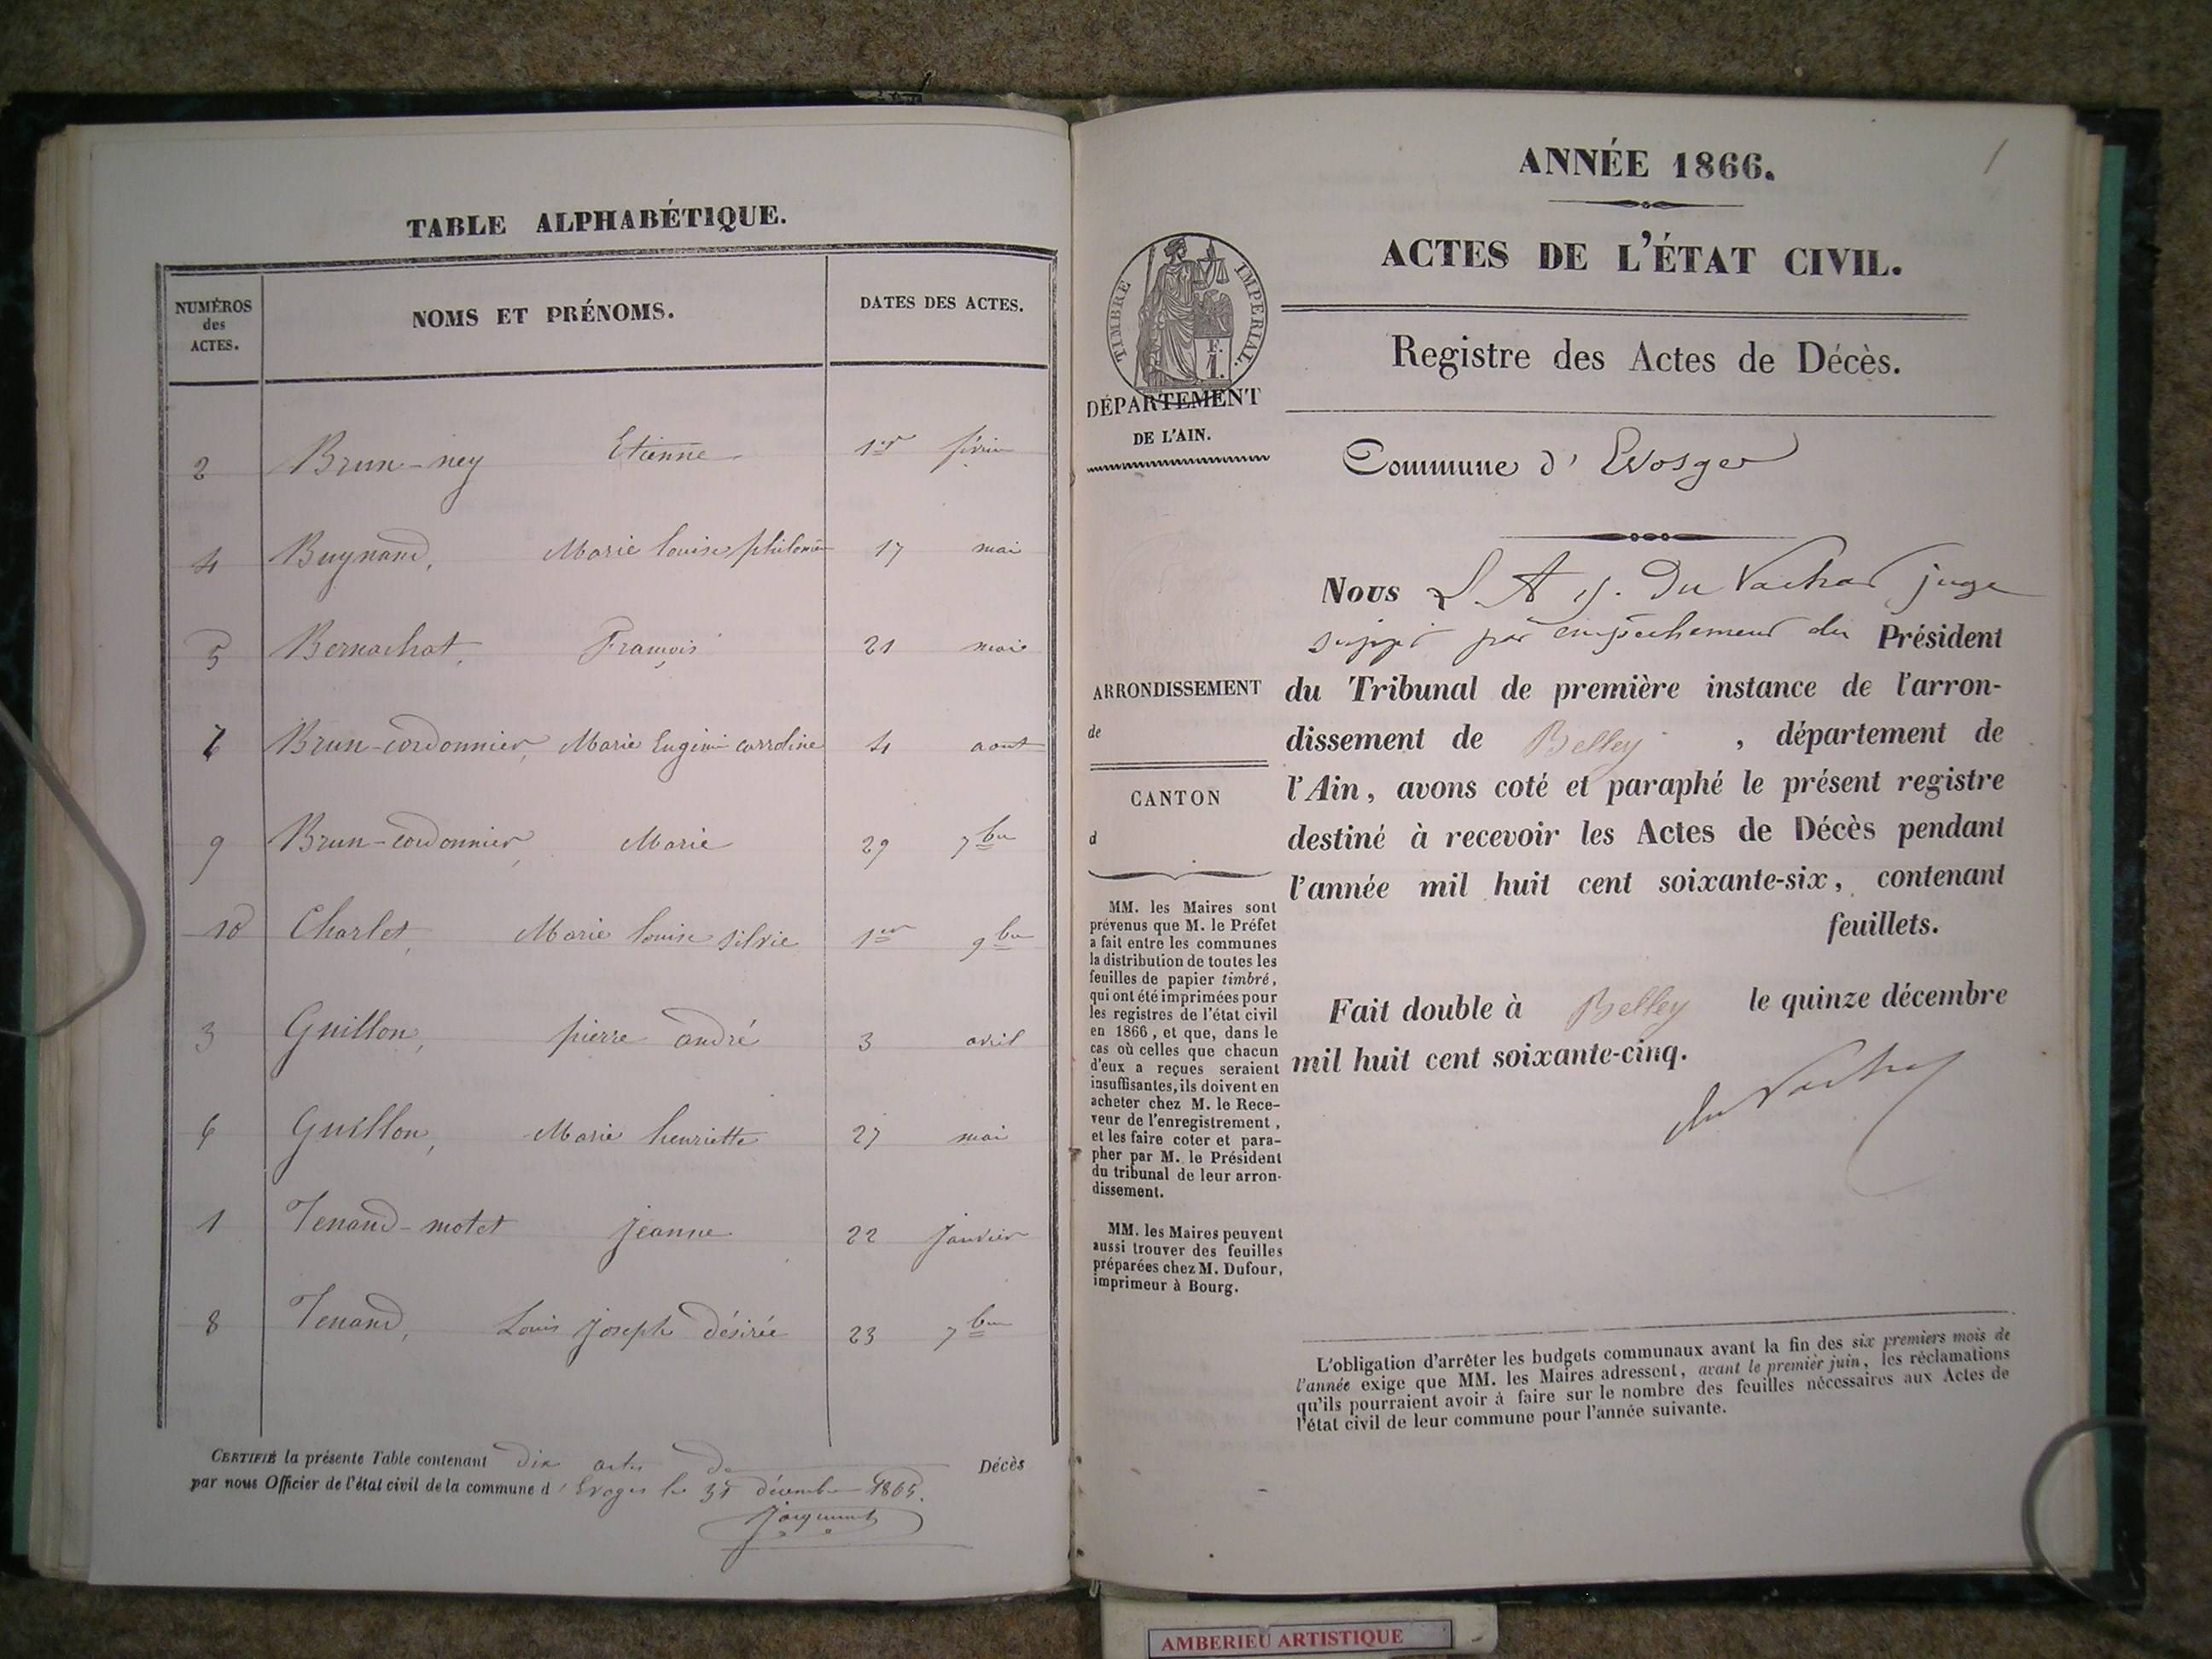 TABLE ALPHABÉTIQUE.
NUMÉROS des ACTES.
NOMS ET PRÉNOMS.
DATES DES ACTES.
2 Brun-ney Etienne 1er février
4 Buynand, Marie louise philomène 17 mai
5 Bernachat, François 21 mai
7 Brun-cordonnier, Marie Eugénie carroline 4 aout
9 Brun-cordonnier, Marie 29 7bre
10 Charlet, Marie louise silvie 1er 9bre
3 Guillon, pierre andré 3 avril
6 Guillon, Marie henriette 27 mai
1 Tenand-motet jeanne 22 janvier
8 Tenand, Louis joseph désirée 23 7bre
CERTIFIÉ la présente Table contenant dix actes de Décès
par nous Officier de l'état civil de la commune d'Evoges le 31 décembre 1865.
1
ANNÉE 1866.
ACTES DE L'ÉTAT CIVIL.
TIMBRE IMPERIAL.
F.
1.
DÉPARTEMENT
DE L'AIN.
Registre des Actes de Décès.
Commune d'Evosges
ARRONDISSEMENT
de
CANTON
d
MM. les Maires sont
prévenus que M. le Préfet
a fait entre les communes
la distribution de toutes les
feuilles de papier timbré,
qui ont été imprimées pour
les registres de l'état civil
en 1866, et que, dans le
cas où celles que chacun
d'eux a reçues seraient
insuffisantes, ils doivent en
acheter chez M. le Rece-
veur de l'enregistrement,
et les faire coter et para-
pher par M. le Président
du tribunal de leur arron-
dissement.
MM. les Maires peuvent
aussi trouver des feuilles
préparées chez M. Dufour,
imprimeur à Bourg.
Nous Du Vachat juge
par empêchement du Président
du Tribunal de première instance de l'arron-
dissement de Belley, département de
l'Ain, avons coté et paraphé le présent registre
destiné à recevoir les Actes de Décès pendant
l'année mil huit cent soixante-six, contenant
feuillets.
Fait double à Belley le quinze décembre
mil huit cent soixante-cinq.
du Vachat
L'obligation d'arrêter les budgets communaux avant la fin des six premiers mois de
l'année exige que MM. les Maires adressent, avant le premier juin, les réclamations
qu'ils pourraient avoir à faire sur le nombre des feuilles nécessaires aux Actes de
l'état civil de leur commune pour l'année suivante.
AMBERIEU ARTISTIQUE